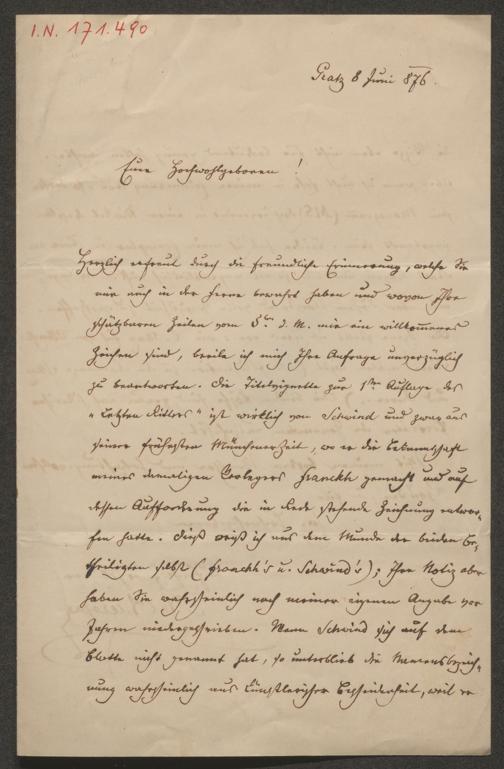 I.N. 171.490
Gratz 8 Juni 876.
Eure Hochwohlgeboren!
Herzlich erfreut durch die freundliche Erinnerung, welche Sie
mir auch in der Ferne bewahrt haben und wovon Ihre
schätzbaren Zeilen vom d. M. mir ein willkommenes
Zeichen sind, beeile ich mich Ihre Anfrage unverzüglich
zu beantworten. Die Titelvignette zur 1ten Auflage des
"Letzten Ritters" ist wirklich von Schwind und zwar aus
seiner frühesten Münchnerzeit, wo er die Bekanntschaft
meines damaligen Verlegers Franckh gemacht und auf
dessen Aufforderung die in Rede stehende Zeichnung entwor-
fen hatte. Dieß weiß ich aus dem Munde der beiden Be-
theiligten selbst (Franckh's u. Schwind's); Ihre Notiz aber
haben Sie wahrscheinlich nach meiner eigenen Angabe vor
Jahren niedergeschrieben. Wenn Schwind sich auf dem
Blatte nicht genannt hat, so unterblieb die Namensbezeich-
nung wahrscheinlich aus künstlerischer Bescheidenheit, weil er